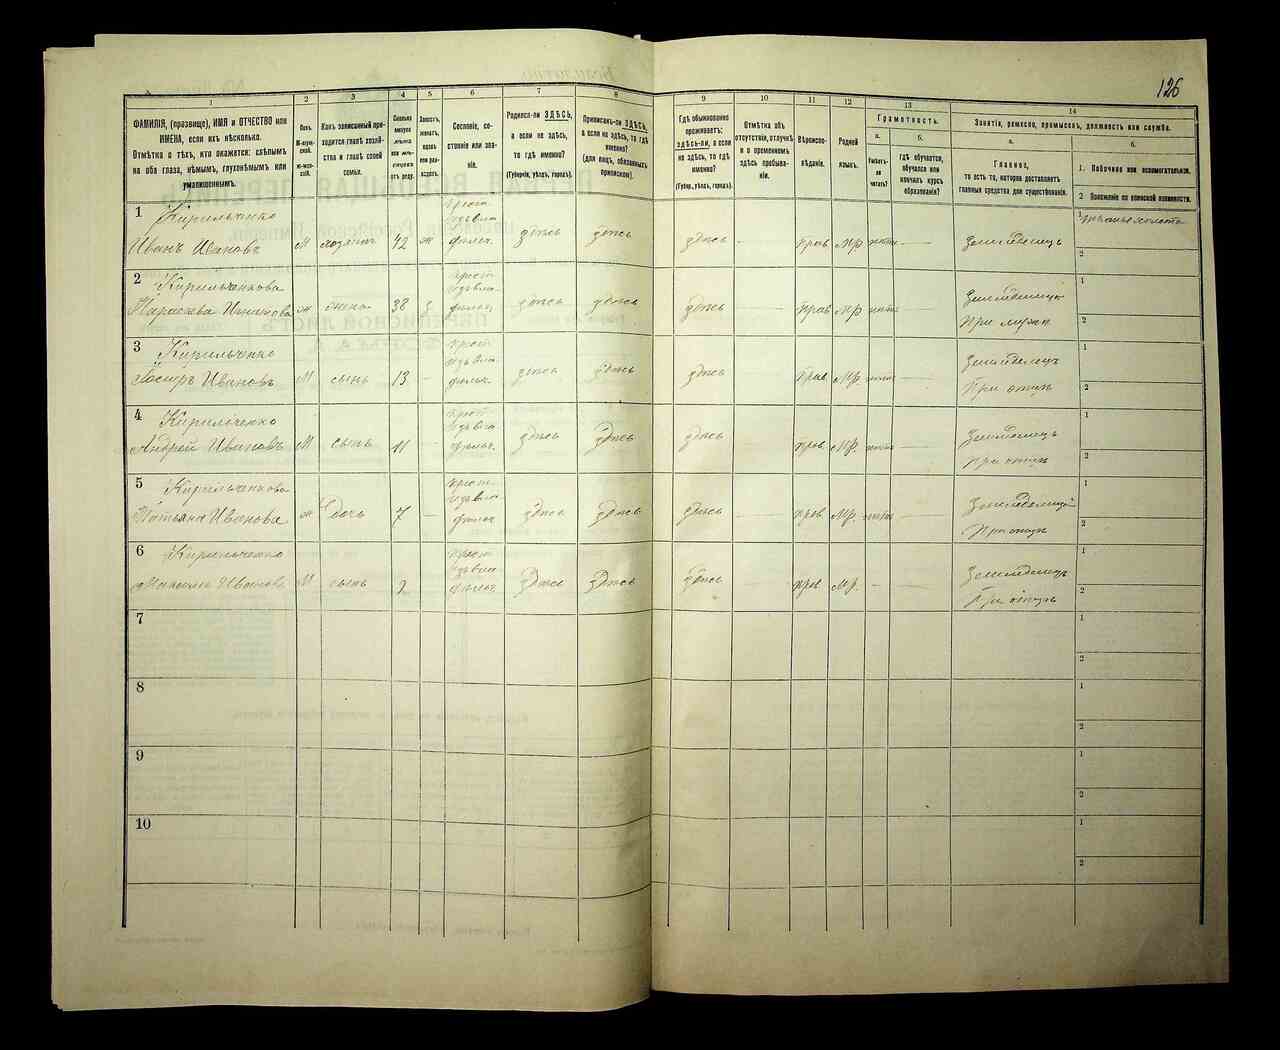 126
1
2
3
4
5
6
7
8
9
10
11
12
13
14
ФАМИЛІЯ, (прозвище), ИМЯ и ОТЧЕСТВО или
ИМЕНА, если ихъ нѣсколько.
Отмѣтка о тѣхъ, кто окажется: слѣпымъ
на оба глаза, нѣмымъ, глухонѣмымъ или
умалишеннымъ.
Полъ.
Какъ записанный при-
ходится главѣ хозяй-
ства и главѣ своей
семьи.
Сословіе, со-
стояніе или зва-
ніе.
Родился-ли ЗДѢСЬ,
а если не здѣсь,
то гдѣ именно?
(Губернія, уѣздъ, городъ).
Приписанъ-ли ЗДѢСЬ,
а если не здѣсь, то гдѣ
именно?
(для лицъ, обязанныхъ
припискою).
Гдѣ обыкновенно
проживаетъ:
ЗДѢСЬ-ли, а если
не здѣсь, то гдѣ
именно?
(Губернія, уѣздъ, городъ).
Отмѣтка объ
отсутствіи, отлучкѣ
и о временномъ
здѣсь пребыва-
ніи.
Вѣроиспо-
вѣданіе.
Родной
языкъ.
Грамотность.
а.
Умѣетъ-
ли
читать?
б.
гдѣ обучается,
обучался или
кончилъ курсъ
образованія?
Занятія, ремесло, промыселъ, должность или служба.
а.
Главное,
то есть то, которое доставляетъ
главныя средства для существованія.
б.
1. Побочное или вспомогательное.
2 Положеніе по воинской повинности.
1 Кирильченко
Иванъ Ивановъ М хозяинъ 42 ж здѣсь здѣсь здѣсь — прав МР нѣтъ — земледѣлецъ
2 Кирильченкова
Параскева ж жена 38 з здѣсь здѣсь здѣсь — прав МР нѣтъ — Земледѣлецъ
При мужѣ
3 Кирильченко
Ивановъ М сынъ 13 — здѣсь здѣсь здѣсь — прав МР нѣтъ — Земледѣлецъ
При отцѣ
4 Кирильченко
Андрей Ивановъ М сынъ 11 — здѣсь здѣсь здѣсь — прав МР. нѣтъ — Земледѣлецъ
При отцѣ
5 Кирильченкова
Татьяна Иванова ж дочь 7 — здѣсь здѣсь здѣсь — прав МР. нѣтъ — Земледѣлецъ
При отцѣ
6 Кирильченко
Максимъ Ивановъ М сынъ 2 — здѣсь здѣсь здѣсь — прав МР. — — Земледѣлецъ
При отцѣ
7
8
9
10